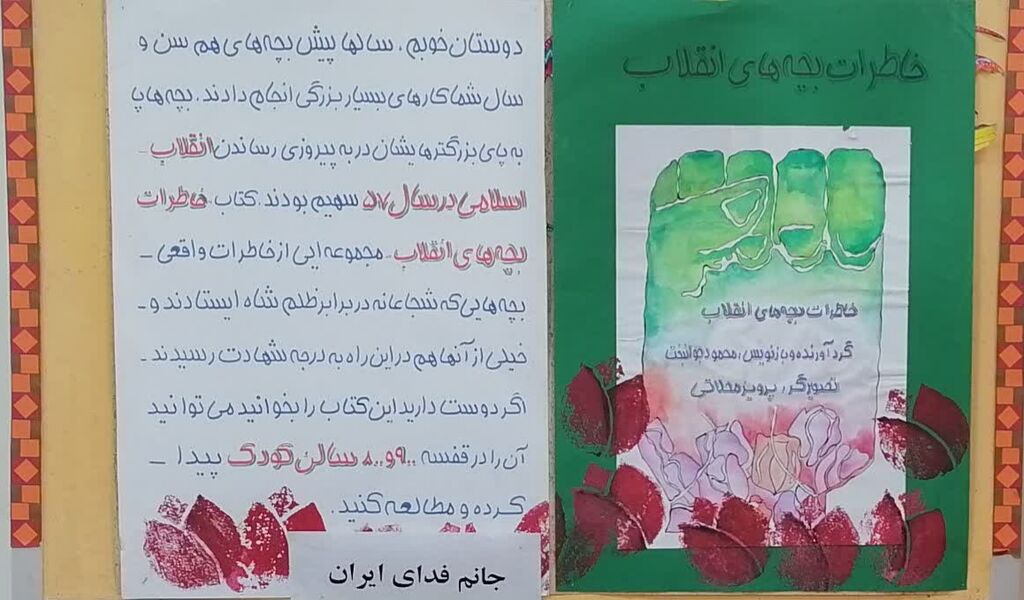 خاطرات بچه های انقلاب
خاطرات بچه های انقلاب
گردآورنده و بازنویس: محمود جوانبخت
تصویرگر: پرویز محلاتی
دوستان خوبم، سالها پیش بچه های هم سن و
سال شما کارهای بسیار بزرگی انجام دادند. بچه ها پا
به پای بزرگترهایشان در به پیروزی رساندن انقلاب
اسلامی در سال ۵۷ سهیم بودند. کتاب خاطرات
بچه های انقلاب مجموعه ایی از خاطرات واقعی
بچه هایی که شجاعانه در برابر ظلم شاه ایستادند و
خیلی از آنها هم در این راه به درجه شهادت رسیدند
اگر دوست دارید این کتاب را بخوانید می توانید
آن را در قفسه ۹۰۰ و ۸۰۰ سالن کودک پیدا
کرده و مطالعه کنید.
جانم فدای ایران